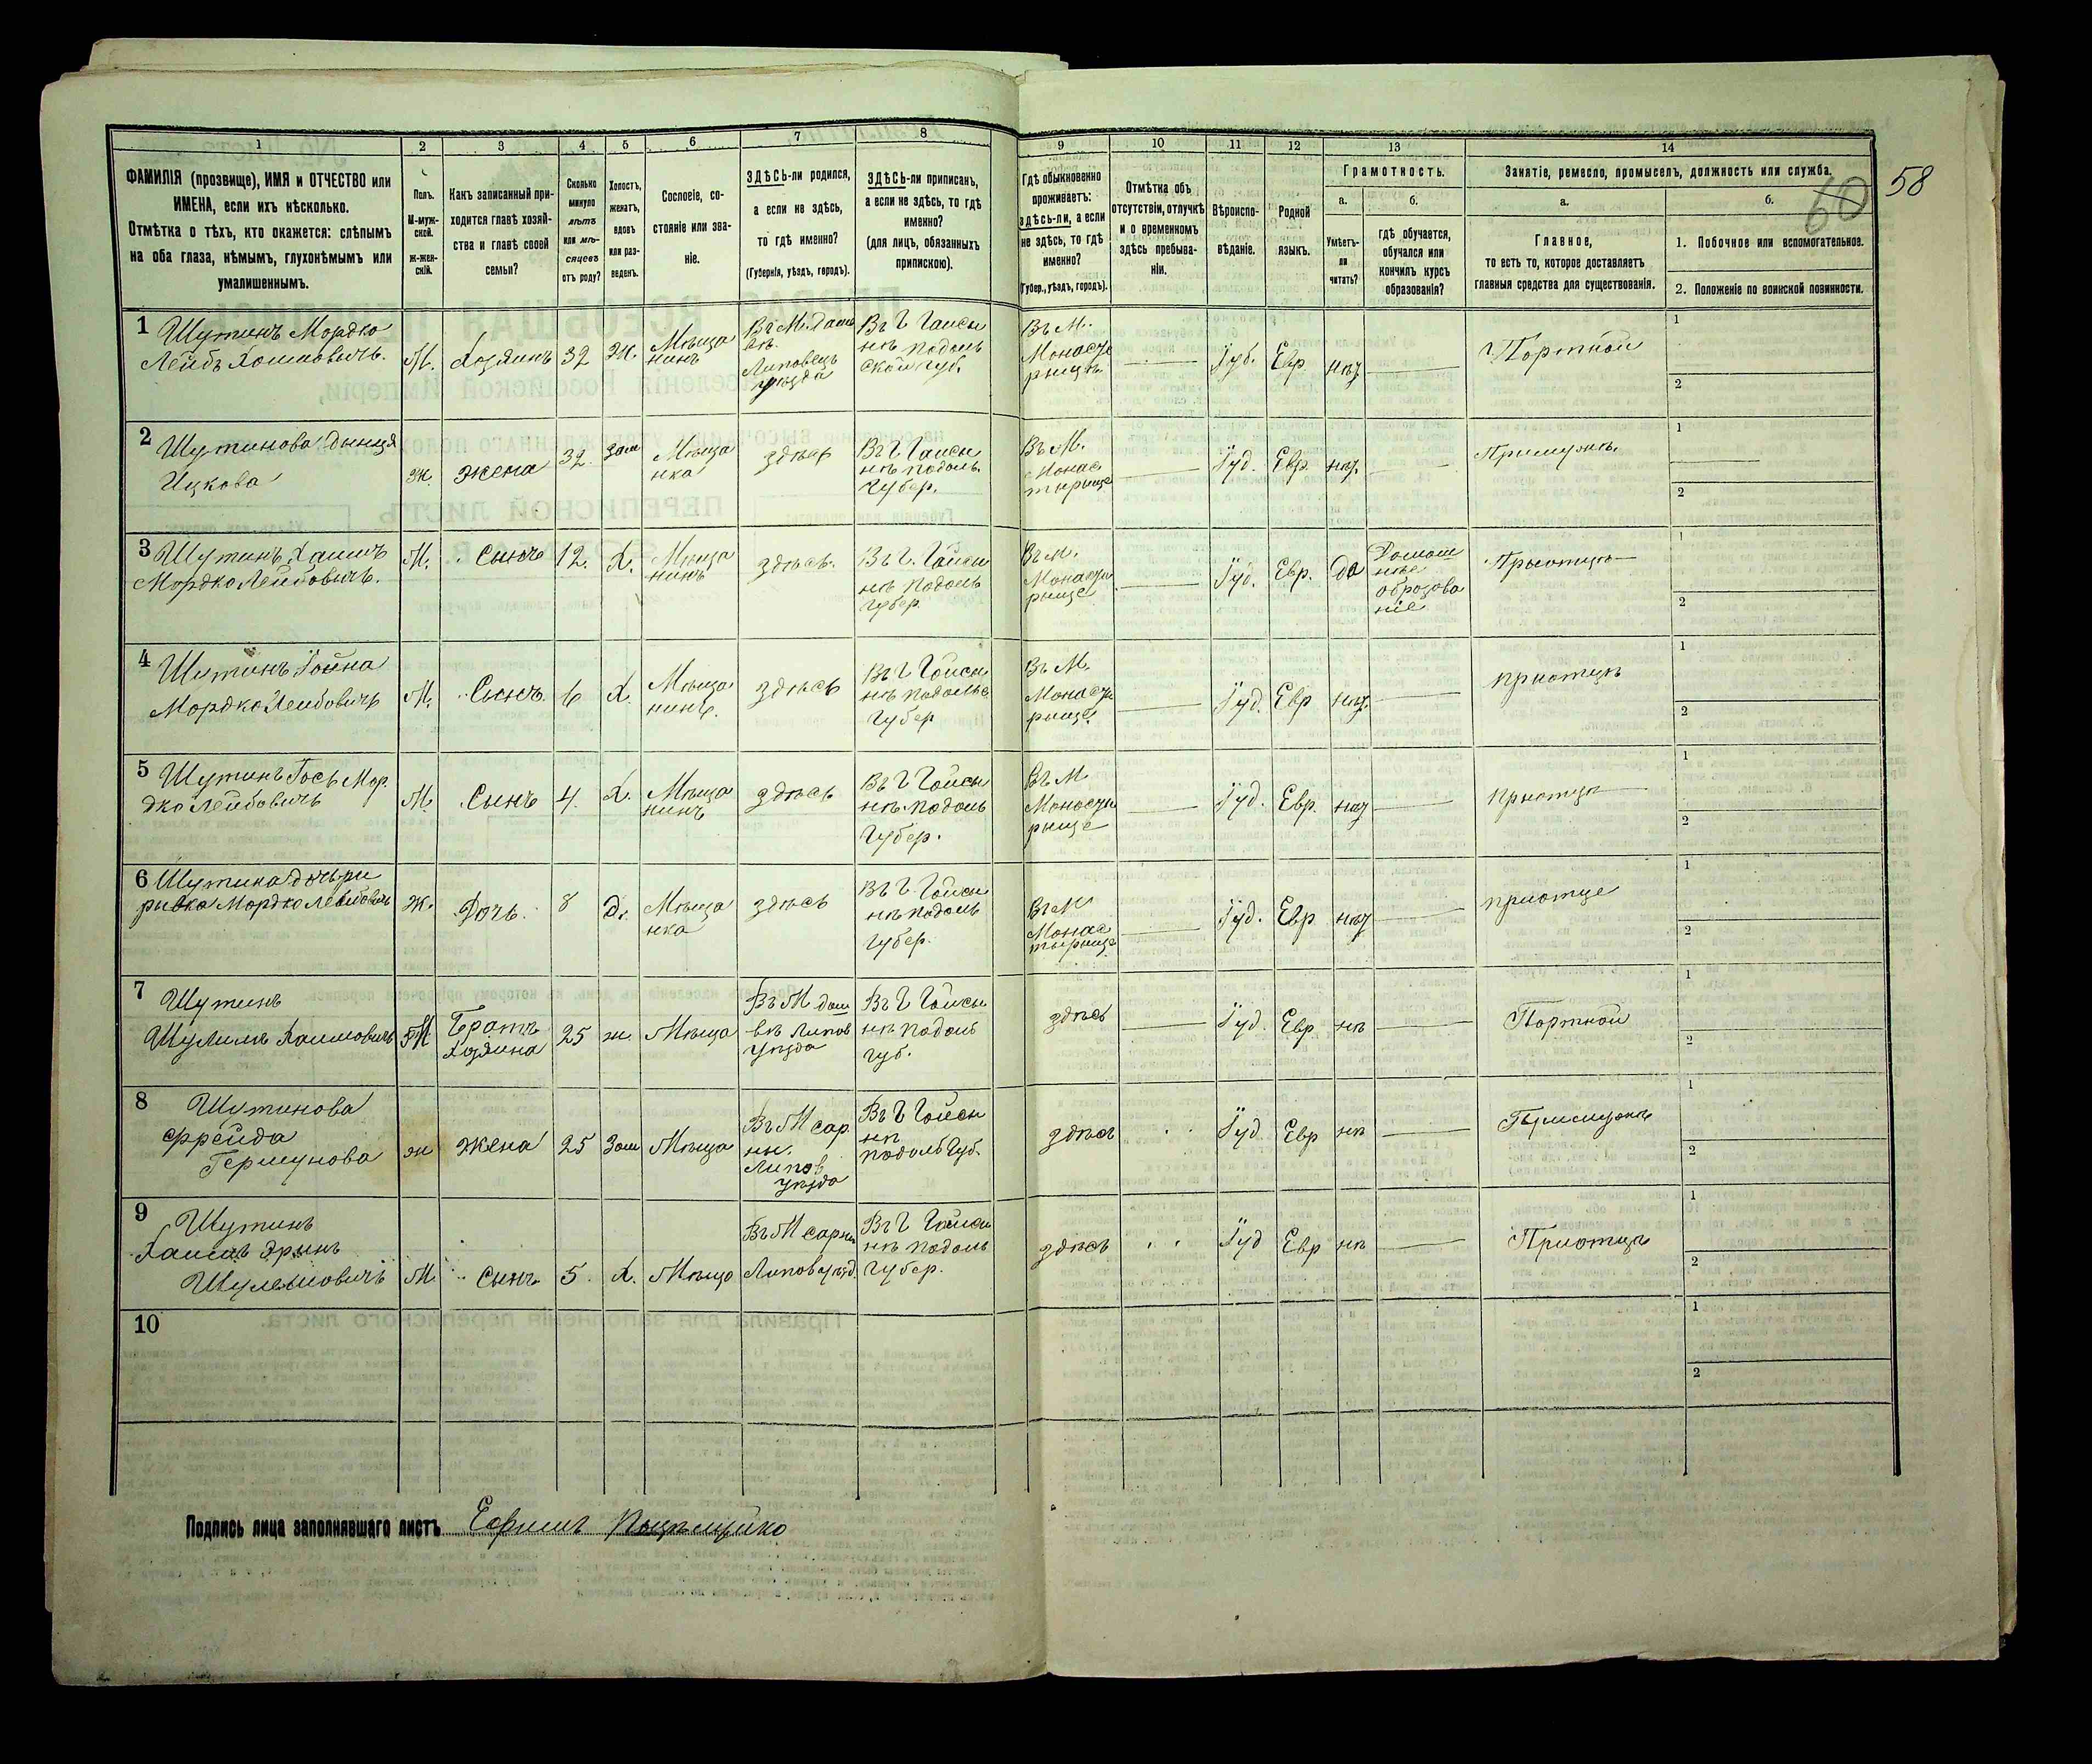 1 2 3 4 5 6 7 8 9 10 11 12 13 14
ФАМИЛІЯ (прозвище), ИМЯ и ОТЧЕСТВО или
ИМЕНА, если ихъ нѣсколько.
Отмѣтка о тѣхъ, кто окажется: слѣпымъ
на оба глаза, нѣмымъ, глухонѣмымъ или
умалишеннымъ.
Полъ.
М-муж-
ской.
Ж-жен-
скій.
Какъ записанный при-
ходится главѣ хозяй-
ства и главѣ своей
семьи?
Сколько
минуло
лѣтъ
или мѣ-
сяцевъ
отъ роду?
Холостъ,
женатъ,
вдовъ
или раз-
веденъ.
Сословіе, со-
стояніе или зва-
ніе.
ЗДѢСЬ-ли родился,
а если не здѣсь,
то гдѣ именно?
(Губернія, уѣздъ, городъ).
ЗДѢСЬ-ли приписанъ,
а если не здѣсь, то гдѣ
именно?
(для лицъ, обязанныхъ
припискою).
Гдѣ обыкновенно
проживаетъ:
здѣсь-ли, а если
не здѣсь, то гдѣ
именно?
(Губер., уѣздъ, городъ).
Отмѣтка объ
отсутствіи, отлучкѣ
и о временномъ
здѣсь пребыва-
ніи.
Вѣроиспо-
вѣданіе.
Родной
языкъ.
Грамотность.
а.
Умѣетъ-
ли
читать?
б.
гдѣ обучается,
обучался или
кончилъ курсъ
образованія?
Занятіе, ремесло, промыселъ, должность или служба.
а.
Главное,
то есть то, которое доставляетъ
главныя средства для существованія.
б.
1. Побочное или вспомогательное.
2. Положеніе по воинской повинности.
60 58
1 Шутинъ Мордко
Лейбъ Хаимовичъ.
М.
Хозяинъ
32
Ж.
Мѣща
нинъ
Въ М. Даше
вѣ.
Липовець
уѣзда
Въ Г Гайсы
нѣ Подоль
ской Губ.
Въ М.
Монасты
рищѣ
Іуд.
Евр
нѣт
Портной
1
2
2 Шутинова
Ицкова
ж.
жена
32.
зам
Мѣща
нка
здѣсь
Въ Г Гайсы
нѣ Подоль.
Губер.
Въ М.
Монас
тырище
Іуд.
Евр.
нѣт.
При мужѣ.
1
2
3 Шутинъ Хаимъ
Мордко Лейбовичъ.
М.
Сынъ
12.
Х.
Мѣща
нинъ
здѣсь.
Въ Г. Гайсы
нѣ Подоль
Губер.
Въ М.
Монасты
рище
Іуд.
Евр.
Да
Домаш
нѣе
образова
ніе
При отцѣ
1
2
4 Шутинъ Іойна
Мордко Лейбовичъ
М.
Сынъ.
6
Х.
Мѣща
нинъ.
здѣсь
Въ Г Гайсы
нѣ Подольс
Губер
Въ М.
Монасты
рище.
Іуд.
Евр
нѣт.
при отцѣ
1
2
5 Шутинъ Іось Мор.
дко Лейбовичъ
М
Сынъ
4.
Х.
Мѣща
нинъ
здѣсь
Въ Г Гайсы
нѣ Подоль
Губер.
Въ М.
Монасты
рище
Іуд.
Евр.
нѣт
при отцѣ
1
2
6 Шутина дочь
ривка Мордко Лейбовичъ
Ж.
Дочь.
8
Д.
Мѣща
нка
здѣсь
Въ Г Гайсы
нѣ Подоль
Губер.
Въ М
Монас
тырище
Іуд.
Евр
нѣт
при отце
1
2
7 Шутинъ
Шулимъ Хаимовичъ
М
Братъ
Хозяина
25
ж.
Мѣща
Въ М Даш
вѣ Липов
Уѣзда
Въ Г Гайсы
нѣ Подоль
Губ.
здѣсь
Іуд.
Евр
нѣ
Портной
1
2
8 Шутинова
Фрейда
Гершунова
ж
Жена
25
Зам
Мѣща
Въ М Сар
ны.
Липов
Уѣзда
Въ Г Гайсы
нѣ
Подоль Губ.
здѣсь
Іуд
Евр
нѣ
При мужѣ
1
2
9 Шутинъ
Хаимъ Эринъ
Шулимовичъ
М
Сынъ
5.
Х.
Мѣща
Въ М Сарны
Липов уѣзд.
Въ Г Гайсы
нѣ Подоль
Губер.
здѣсь
Іуд
Евр
нѣ
При отцѣ
1
2
10
1
2
Подпись лица заполнявшаго листъ Ефимъ